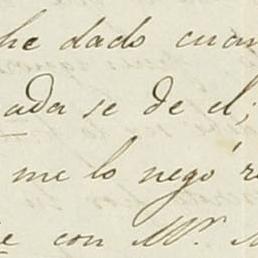 he dado cuan
ada se de el;
me lo negó r
e con Mr. M